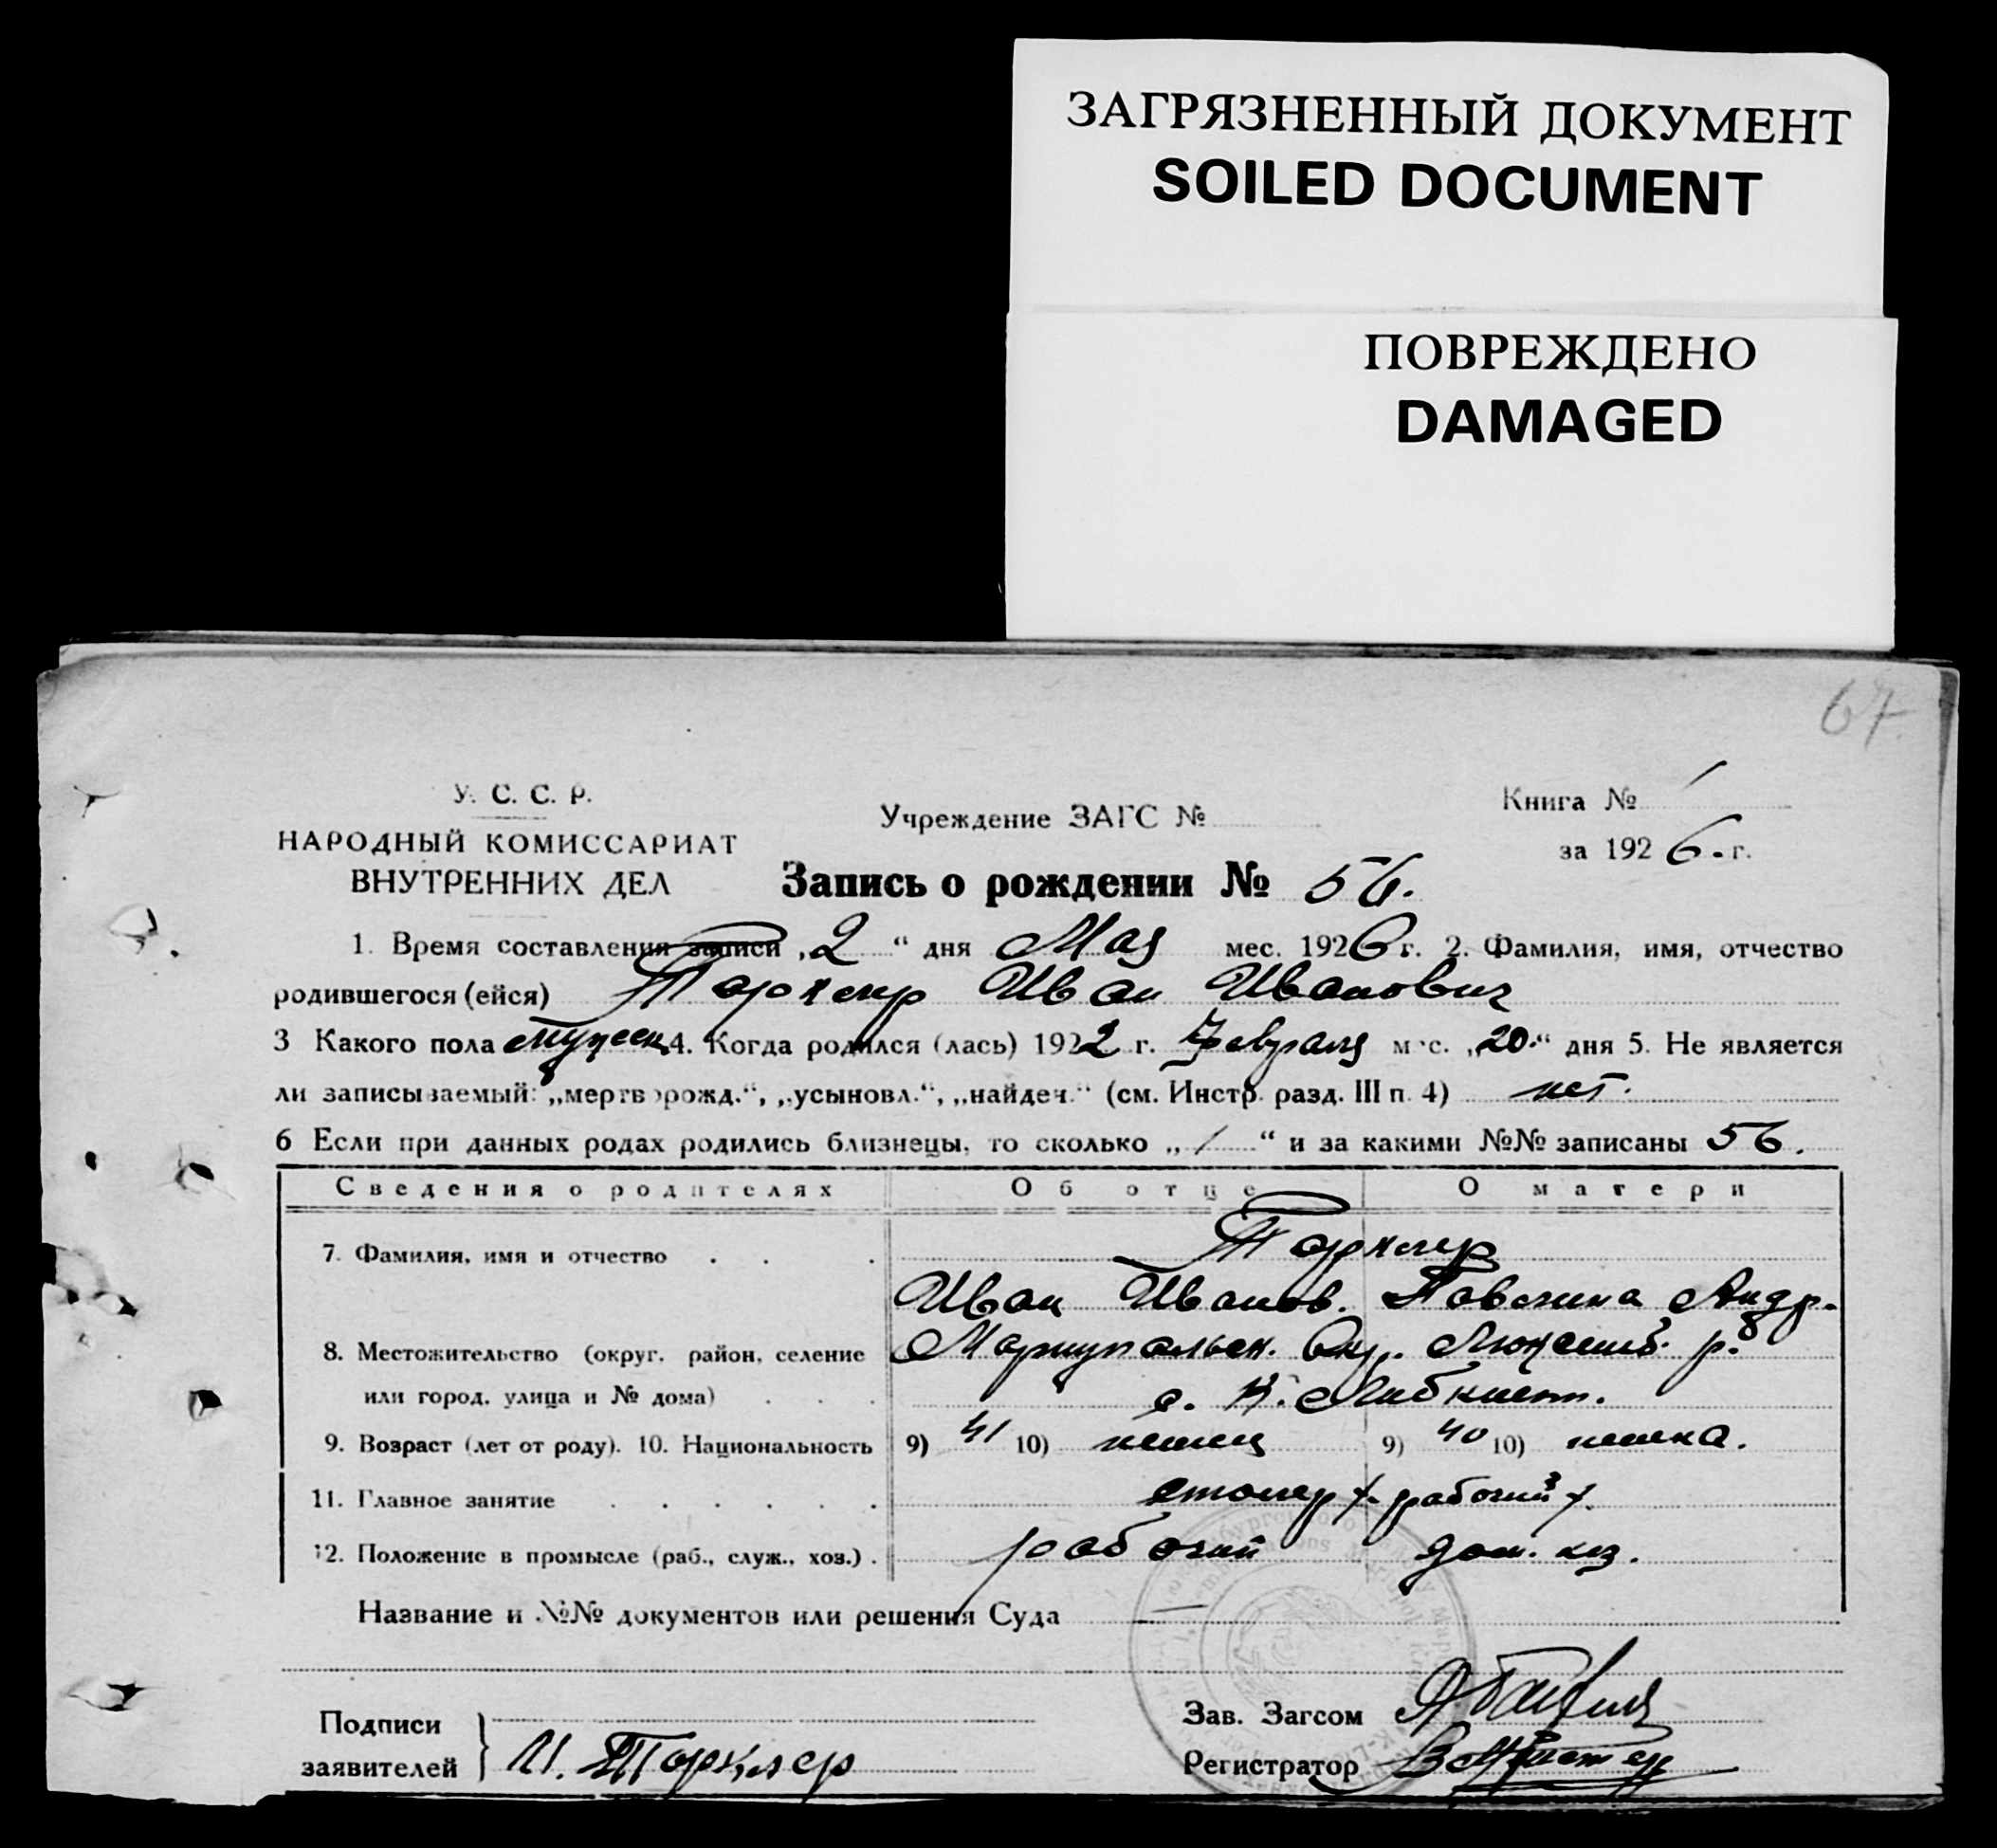 ЗАГРЯЗНЕННЫЙ ДОКУМЕНТ
SOILED DOCUMENT
ПОВРЕЖДЕНО
DAMAGED
67.
У. С. С. Р.
НАРОДНЫЙ КОМИССАРИАТ
ВНУТРЕННИХ ДЕЛ
Учреждение ЗАГС №
Книга № 1
за 1926 г.
Запись о рождении № 56.
1. Время составления записи „2“ дня Мая мес. 1926 г. 2. Фамилия, имя, отчество
родившегося (ейся) Тарклер Иван Иванович
3 Какого пола мужеск 4. Когда родился (лась) 1922 г. Февраля мес. „20“ дня 5. Не является
ли записываемый: „мертворожд.“, „усыновл.“, „найден.“ (см. Инстр. разд. III п. 4) нет.
6 Если при данных родах родились близнецы, то сколько „1“ и за какими №№ записаны 56.
Сведения о родителях Об отце О матери
7. Фамилия, имя и отчество Тарклер
Иван Иванов. Андр.
8. Местожительство (округ, район, селение Мариупольск. Окр. р.
или город, улица и № дома) с. Либкнехт.
9. Возраст (лет от роду). 10. Национальность 9) 41 10) немец 9) 40 10) немка.
11. Главное занятие столяр рабочий
12. Положение в промысле (раб., служ., хоз.) рабочий дом. хоз.
Название и №№ документов или решения Суда —
Подписи
заявителей } И. Тарклер
Зав. Загсом
Регистратор